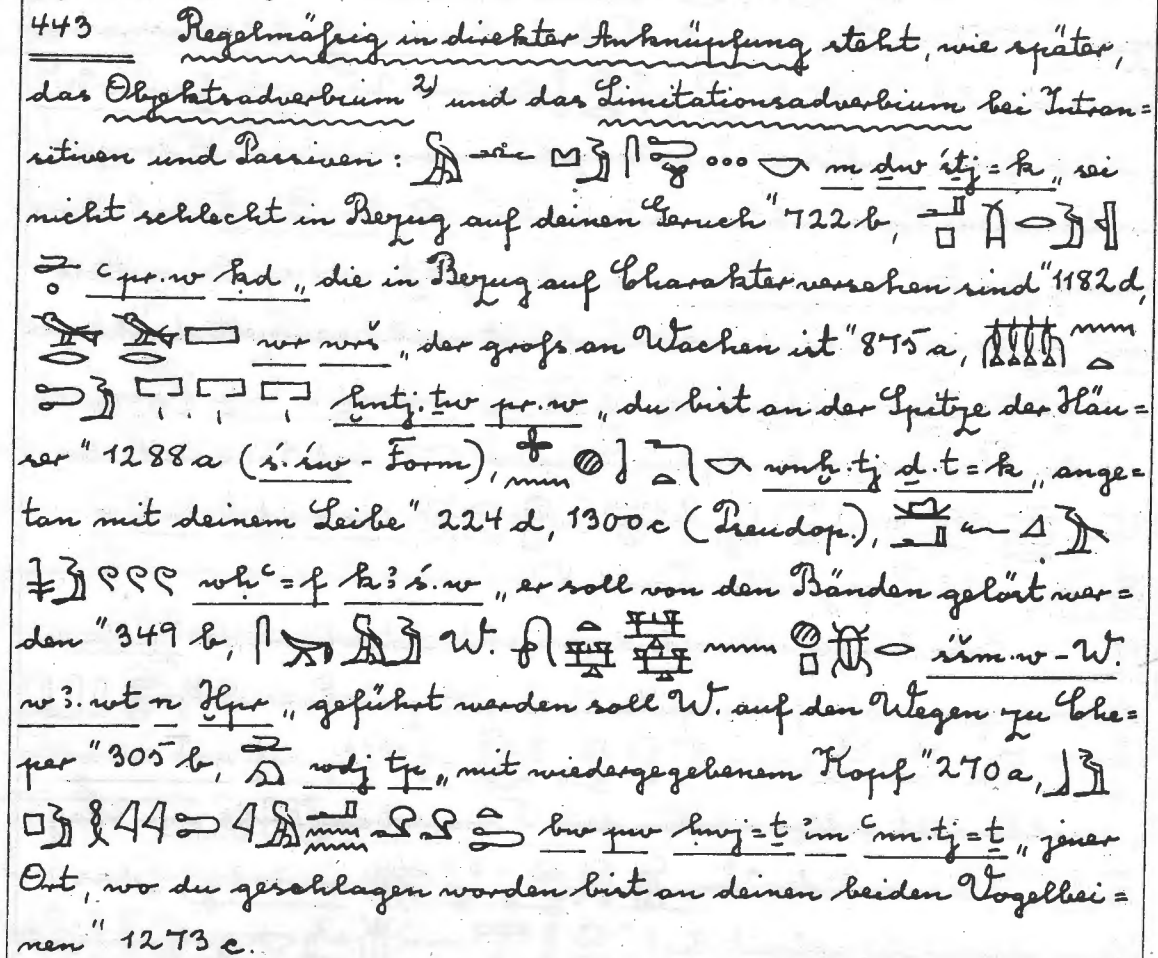 443 Regelmäßig in direkter Anknüpfung steht, wie später,
das Objektsadverbium 2) und das Limitationsadverbium bei Intran=
sitiven und Passiven: m ḏw śṯj=k „sei
nicht schlecht in Bezug auf deinen Geruch" 722 b,
ꜥpr.w ḳd „die in Bezug auf Charakter versehen sind" 1182 d,
wr wrš „der groß an Wachen ist" 875 a,
ḫntj.ṯw pr.w „du bist an der Spitze der Häu=
ser" 1288 a (ś.św-Form), wnḫ.tj ḏ.t=k „ange=
tan mit deinem Leibe" 224 d, 1300 c (Pseudop.),
wḥꜥ=f kꜣś.w „er soll von den Bänden gelöst wer=
den" 349 b, W. śšm.w-W.
wꜣ.wt n Ḫpr „geführt werden soll W. auf den Wegen zu Che=
per" 305 b, wdj tp „mit wiedergegebenem Kopf" 270 a,
bw pw ḥwj=ṯ im ꜥnn.tj=ṯ „jener
Ort, wo du geschlagen worden bist an deinen beiden Vogelbei=
nen" 1273 c.